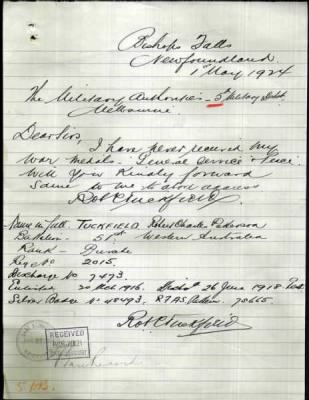 Bishops Falls
Newfoundland.
1st May 1924
The Military Authorities - 5th Military Dist.
Melbourne.
Dear Sirs,
I have never received my
war medals - General Service &
Will you Kindly forward
same to me to above address
Robt C Tuckfield
Name in full. TUCKFIELD Robert Charles
Battalion - 51st Western Australia
Rank - Private
Reg No 2015.
Discharge No 7493.
Enlisted 20 1916. 26 June 1918.
Silver Badge No
Robt C Tuckfield
RECEIVED